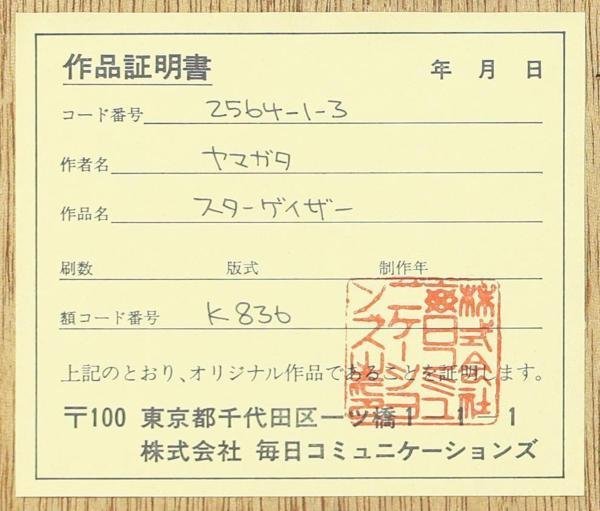 作品証明書 年 月 日
コード番号 2564-1-3
作者名 ヤマガタ
作品名 スターゲイザー
刷数 版式 制作年
額コード番号 K836
上記のとおり、オリジナル作品であることを証明します。
〒100 東京都千代田区一ツ橋1 1 1
株式会社 毎日コミュニケーションズ
株式会社
毎日コミュ
ニケーショ
ンズ之印